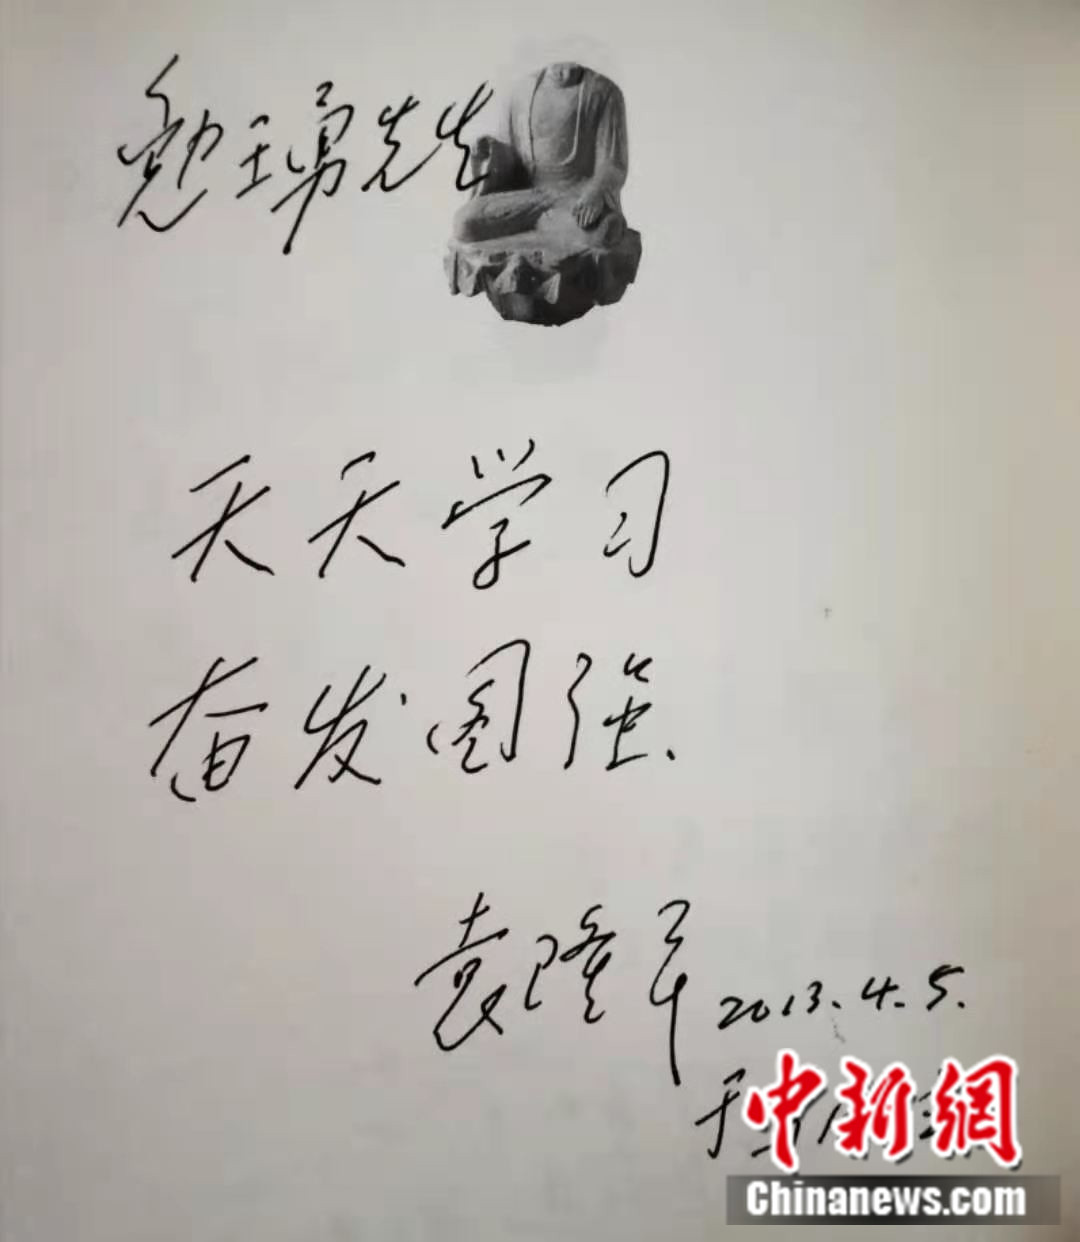 勉王勇先生
天天学习
奋发图强.
袁隆平 2013.4.5.
于
中新網
Chinanews.com